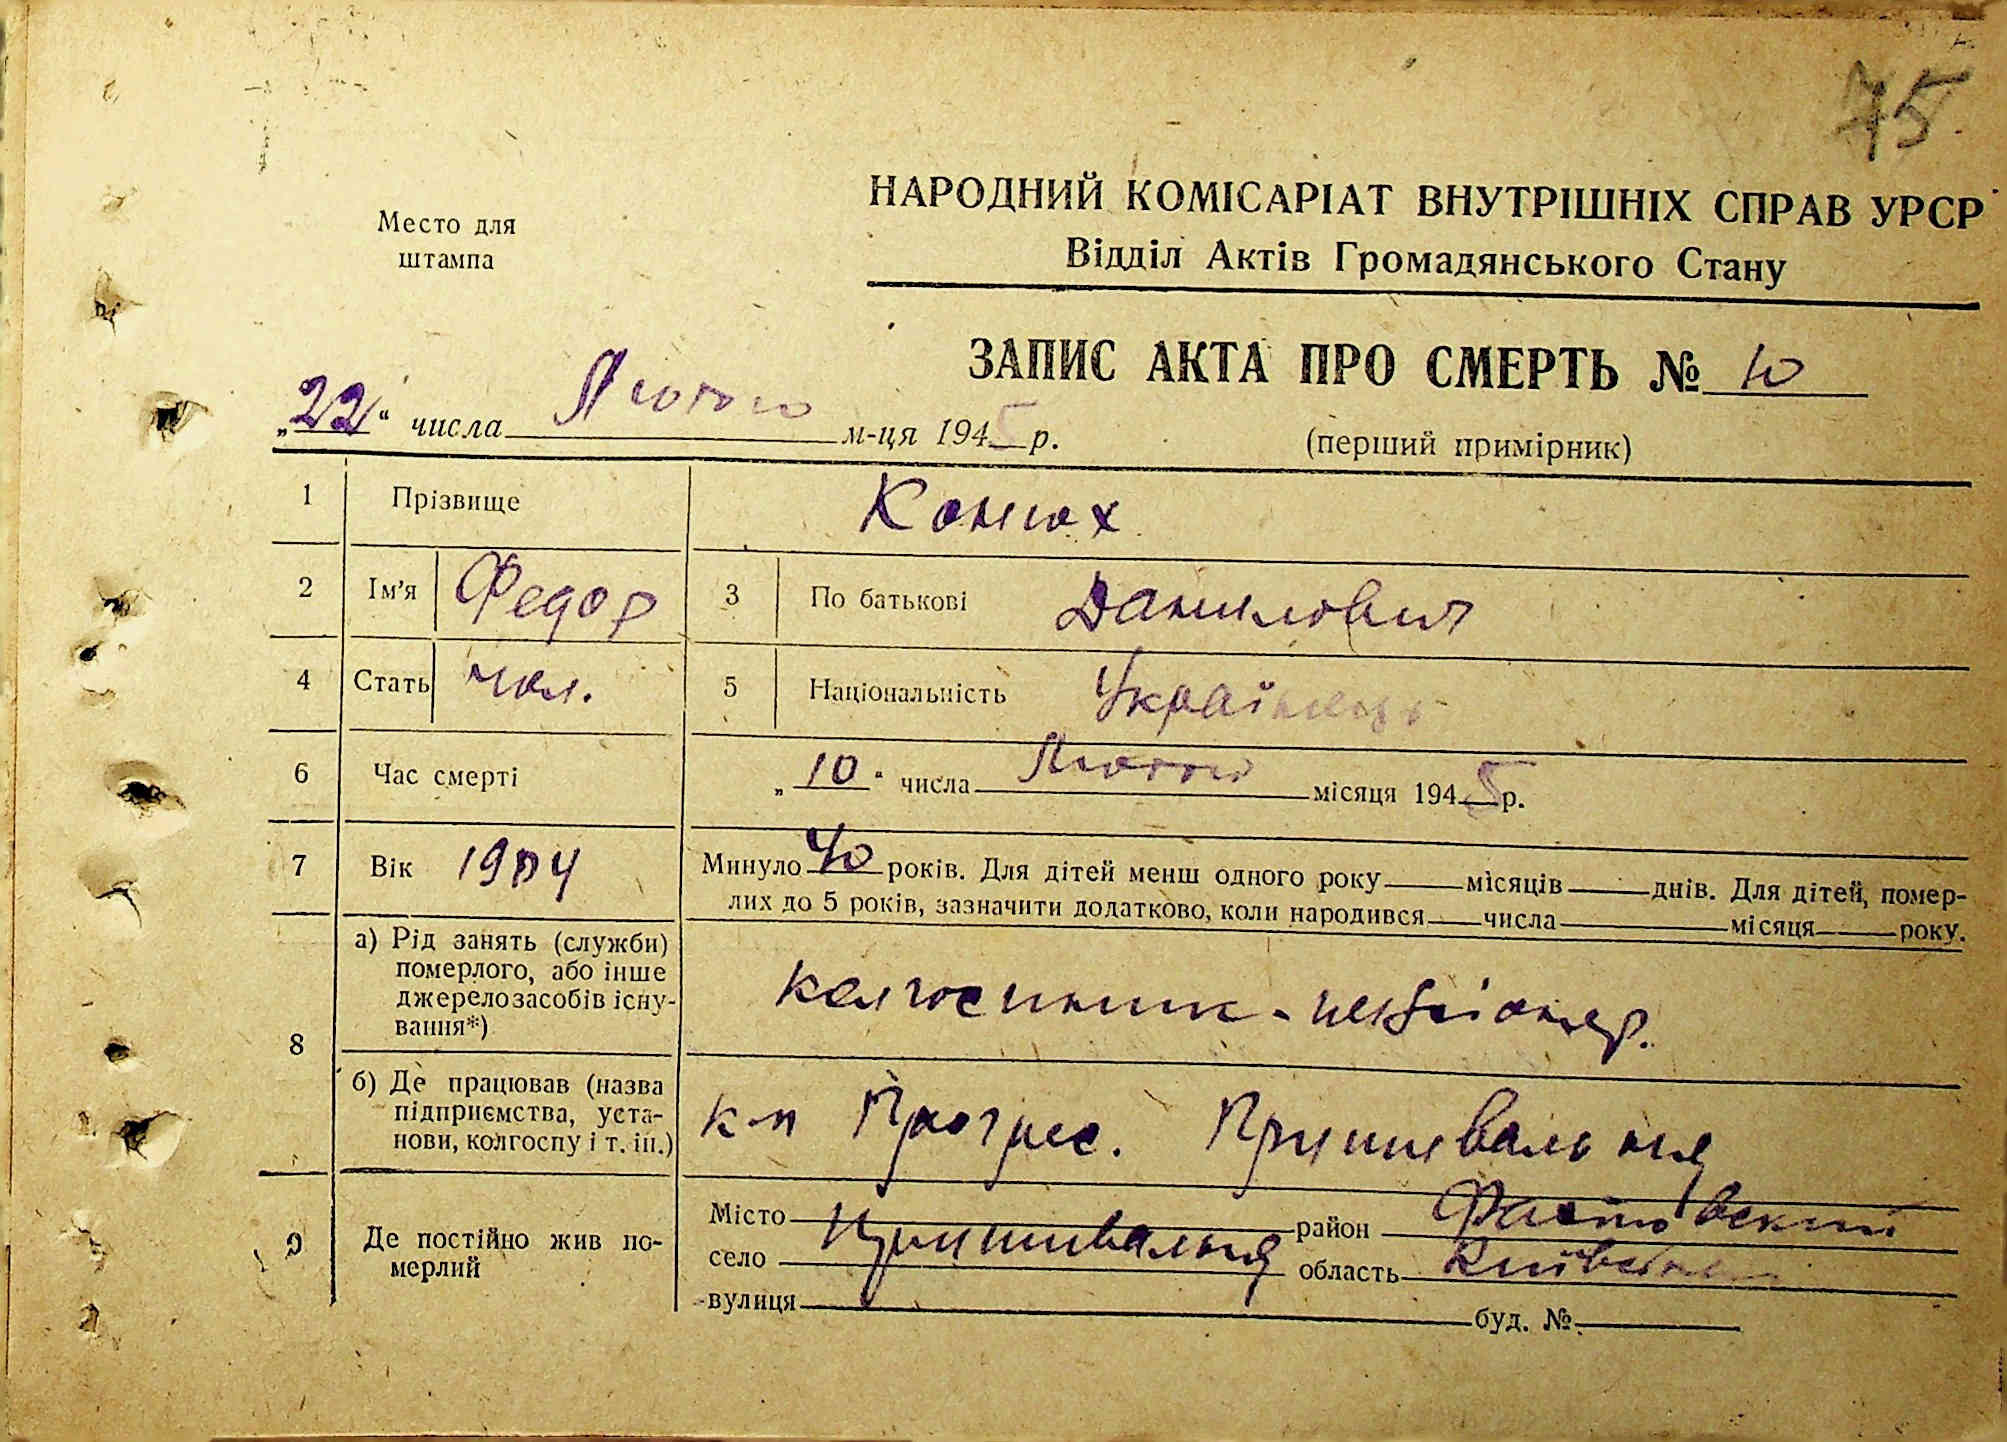 75
НАРОДНИЙ КОМІСАРІАТ ВНУТРІШНІХ СПРАВ УРСР
Место для
штампа
Відділ Актів Громадянського Стану
ЗАПИС АКТА ПРО СМЕРТЬ № 10
„22“ числа Лютого м-ця 1945 р.
(перший примірник)
1 Прізвище Конюх
2 Ім'я Федор 3 По батькові Данилович
4 Стать чол. 5 Національність Українець
6 Час смерті „10“ числа Лютого місяця 1945 р.
7 Вік 1904 Минуло 40 років. Для дітей менш одного року місяців днів. Для дітей, помер-
лих до 5 років, зазначити додатково, коли народився числа місяця року.
8 а) Рід занять (служби)
померлого, або інше
джерело засобів існу-
вання*)
колгоспник - пенсіонер.
б) Де працював (назва
підприємства, уста-
нови, колгоспу і т. ін.)
к-п Прогрес. Пришивальня
9 Де постійно жив по-
мерлий
Місто район Фастовский
село Пришивальня область Київська
вулиця буд. №